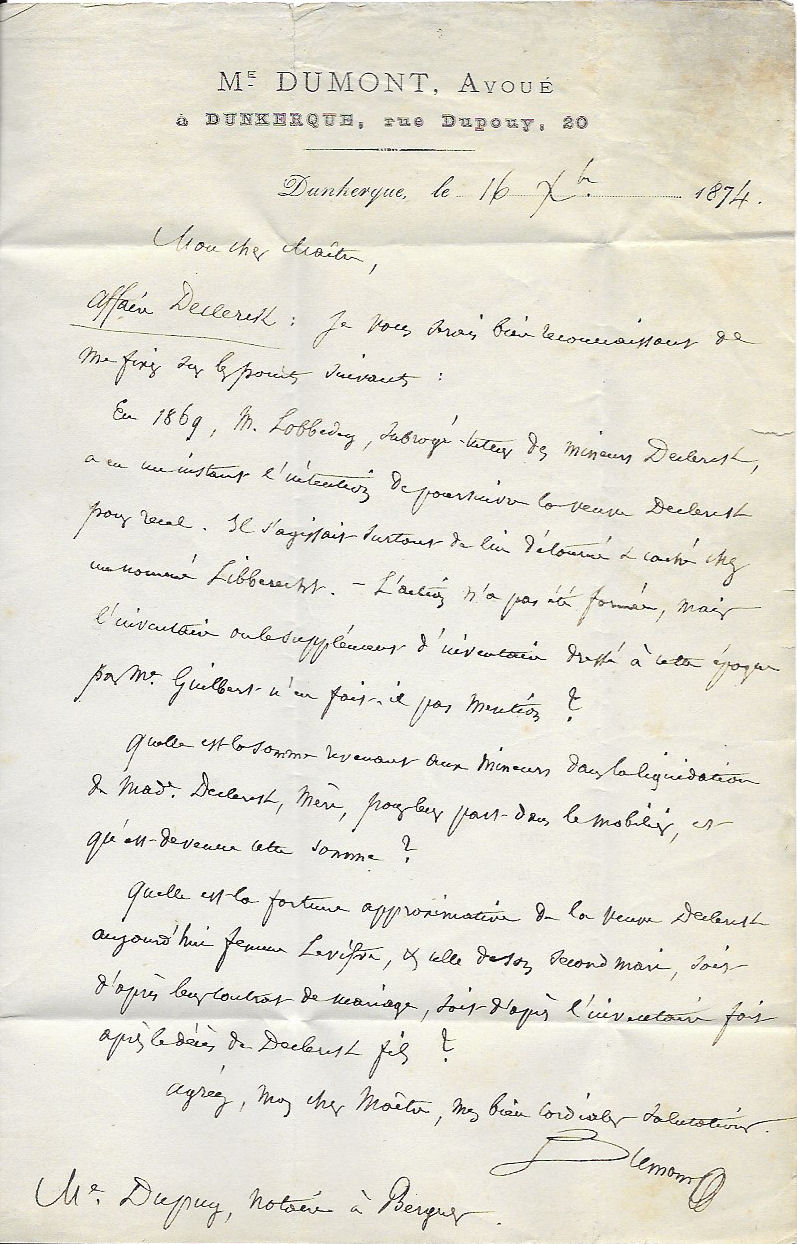 Mᴱ DUMONT, Avoué
à DUNKERQUE, rue Dupouy, 20
Dunkerque, le 16 Xbr. 1874.
Mon cher Maître,
Affaire Declerck : je vous serais bien reconnaissant de
me fixer sur les points suivants :
En 1869, M. Lobbedey, subrogé-tuteur des mineurs Declerck,
a eu un instant l'intention de poursuivre la veuve Declerck
pour recel. Il s'agissait surtout de lin détourné & caché chez
un nommé Libberecht. - L'action n'a pas été formée, mais
l'inventaire ou le supplément d'inventaire dressé à cette époque
par Me. Guilbert n'en fait-il pas mention ?
Quelle est la somme revenant aux mineurs dans la liquidation
de Mad. Declerck, mère, pour leur part dans le mobilier, et
qu'est-devenue cette somme ?
Quelle est la fortune approximative de la veuve Declerck
aujourd'hui femme & celle de son second mari, soit
d'après leur contrat de mariage, soit d'après l'inventaire fait
après le décès de Declerck fils ?
Agréez, mon cher Maître, mes bien cordiales salutations.
Dumont
Me. Dupuy, notaire à Bergues.